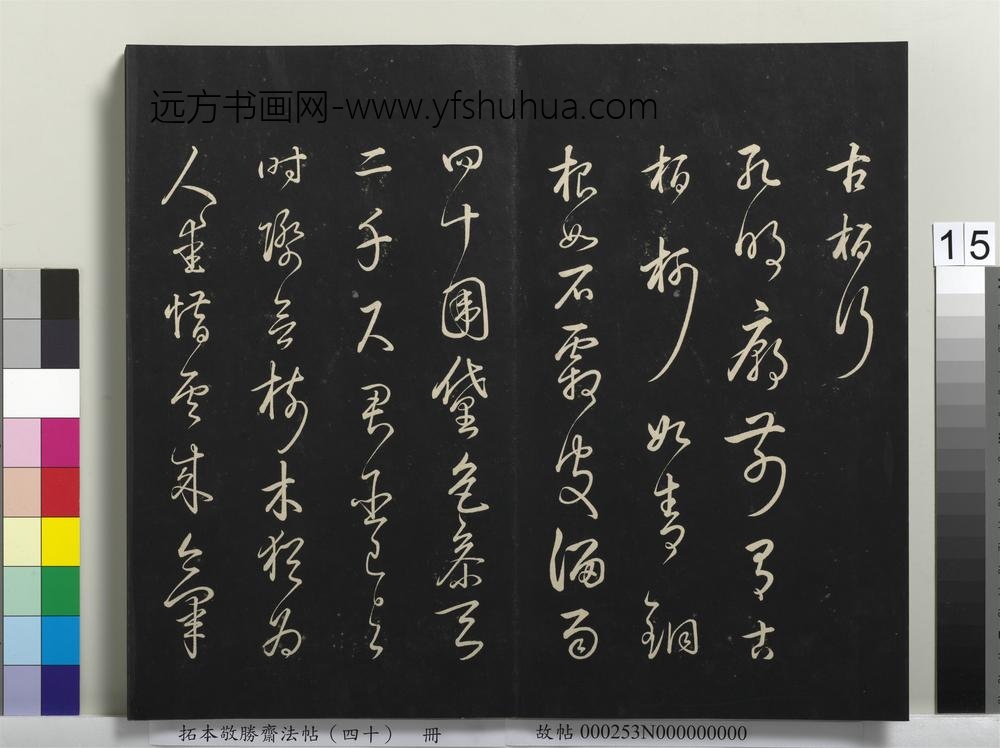 远方书画网-www.yfshuhua.com
古柏行
孔明廟前有古
柏柯如青銅
根如石霜皮溜雨
四十圍黛色參天
二千尺君臣已與
時際會樹木猶為
人愛惜雲來氣
15
拓本敬勝齋法帖（四十） 冊
故帖 000253N000000000